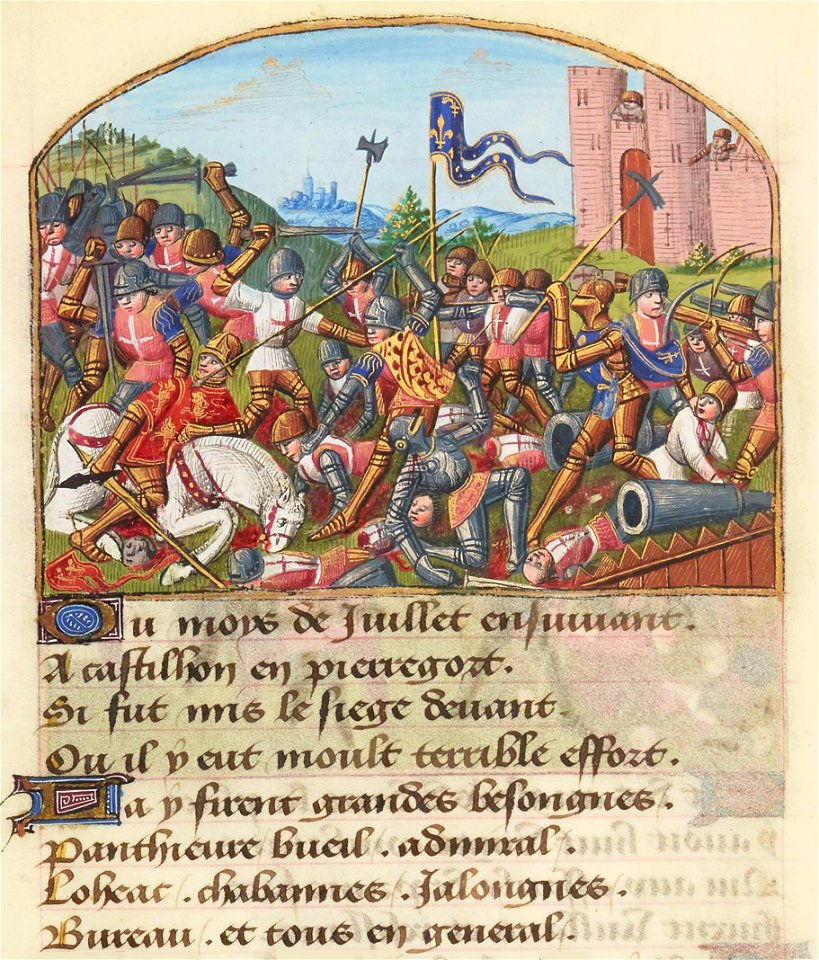 Ou moys de Juillet ensuivant.
A castilhon en pierregort.
Si fut mis le siege devant.
Ou il y eut moult terrible effort.
La y firent grandes besongnes.
Panthieure bueil. admiral.
Loheac. chabannes. Jalongnes.
Bureau. et tous en general.